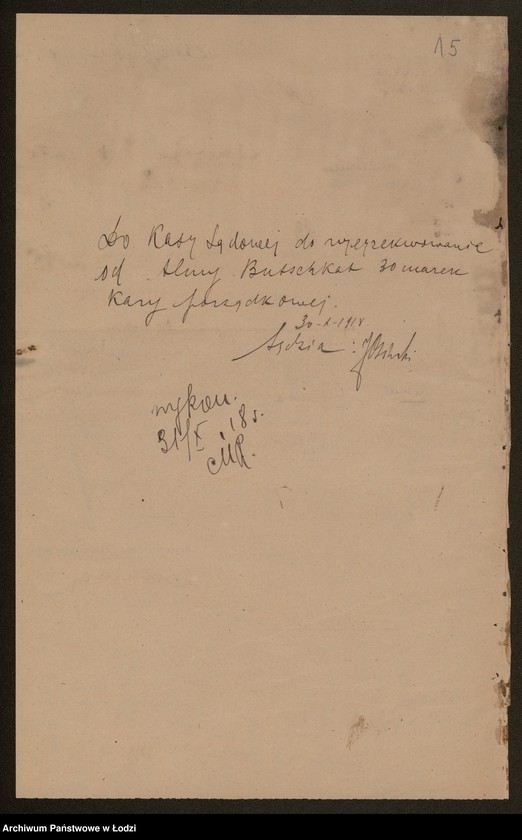 15
Do Kasy Sądowej do wyegzekwowania
od Almy Butschkat 30 marek
Kary porządkowej.
30-X-1918
Sędzia:
wykon.
31/X 18 r.
MR.
Archiwum Państwowe w Łodzi